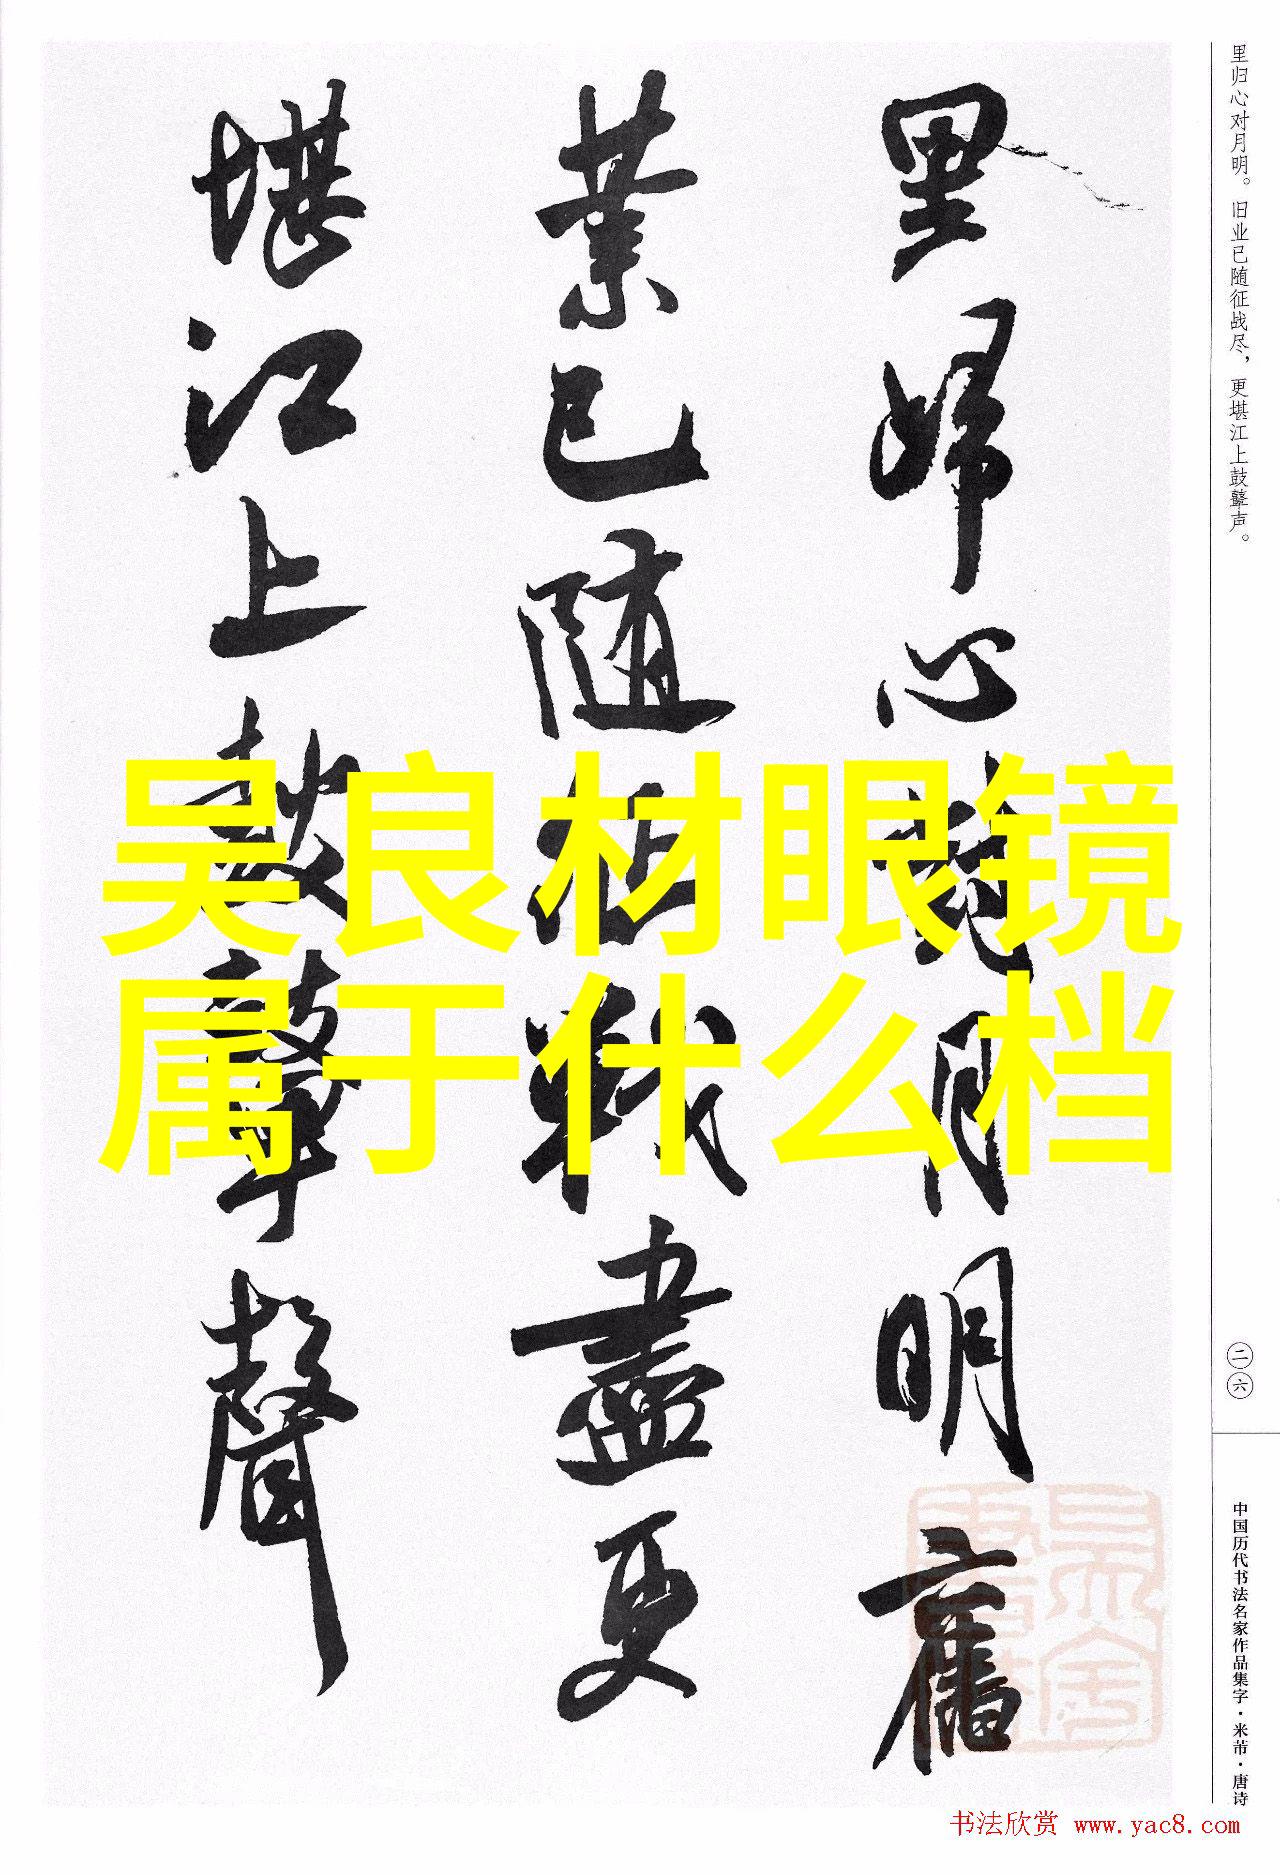 里歸心對月明舊
業已随征戰盡更
堪江上鼓鼙聲
吴良材眼镜
属于什么档
里归心对月明。旧业已随征战尽，更堪江上鼓鼙声。
二六
中国历代书法名家作品集字·米芾·唐诗
书法欣赏 www.yac8.com